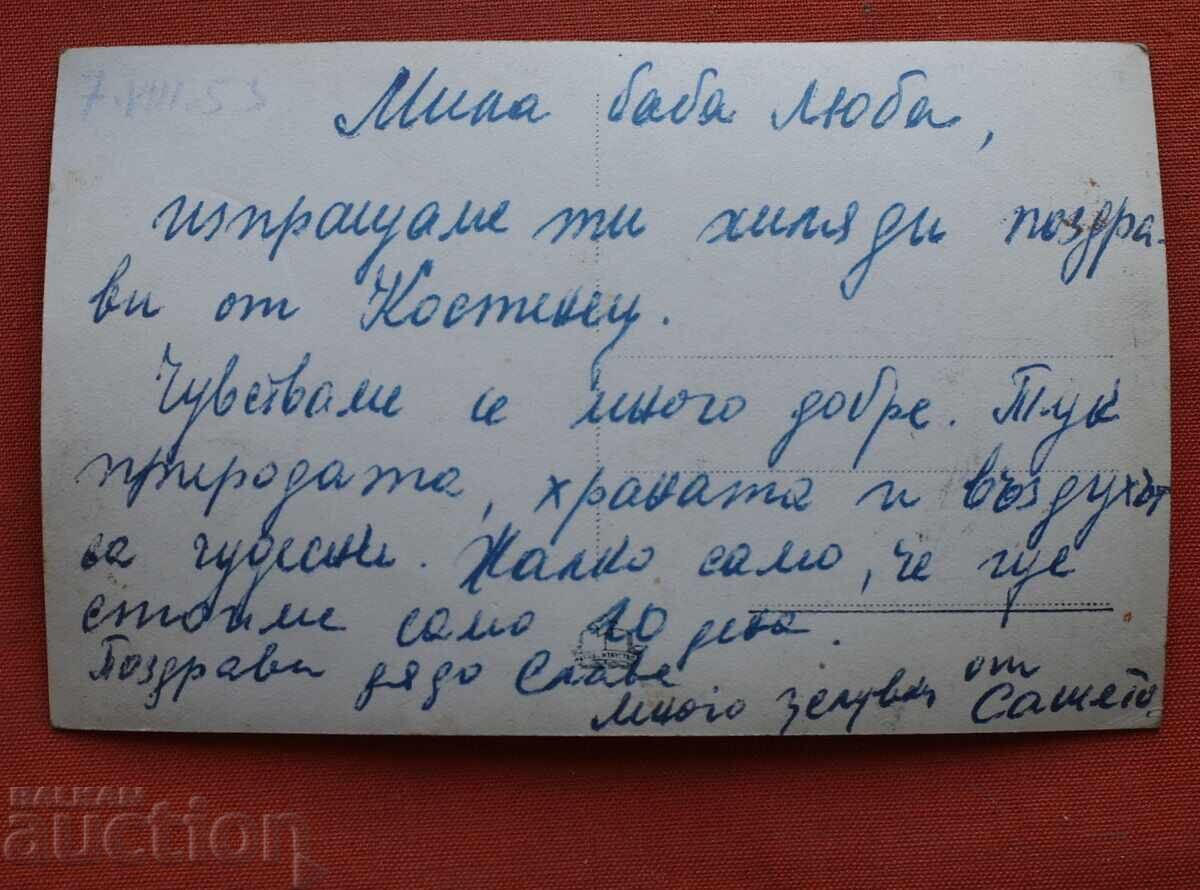 7.VIII.53
Мила баба Люба,
изпращаме ти хиляди поздра-
ви от Костенец.
Чувстваме се много добре. Тук
природата, храната и въздухът
са чудесни. Жалко само, че ще
стоим само 10 дена.
Поздрави дядо Славе
Много целувки от
Сашето
BALKAN
auction